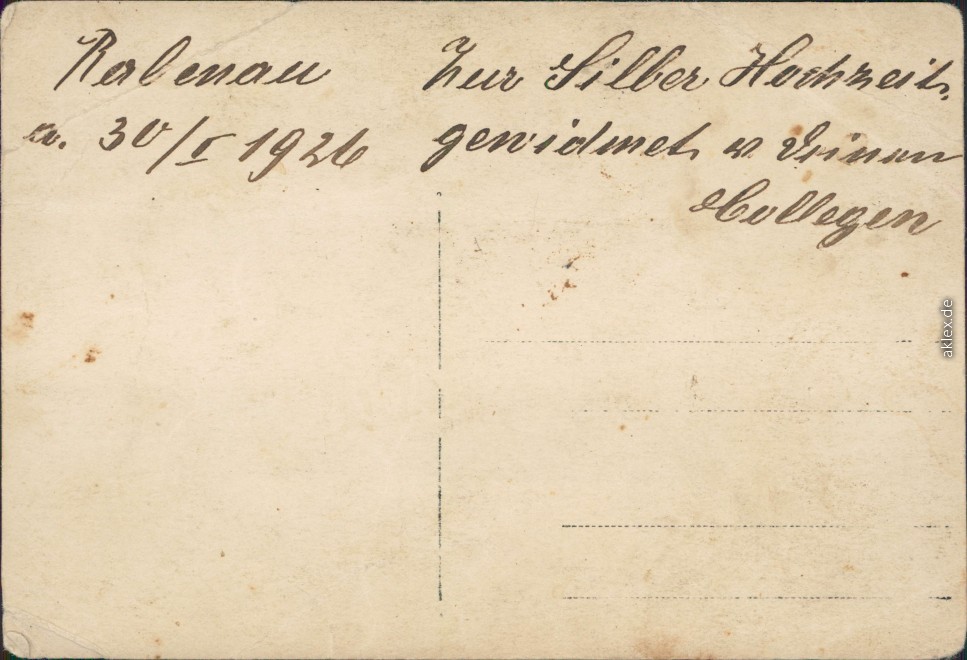 Rabenau
a. 30/I 1926
Zur Silber Hochzeit
gewidmet v. Deinen
Collegen
aklex.de